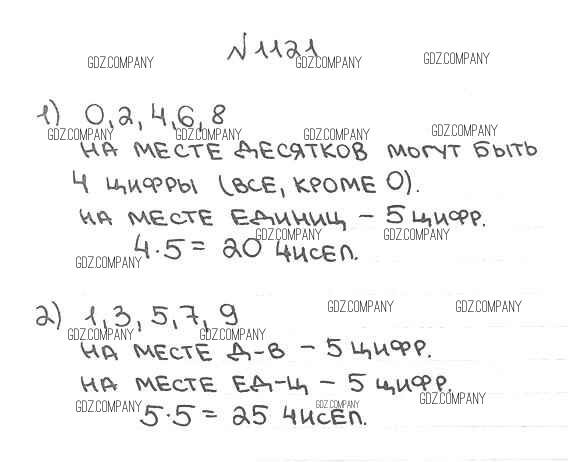 №1121
GDZ.COMPANY GDZ.COMPANY GDZ.COMPANY
1) 0, 2, 4, 6, 8
GDZ.COMPANY GDZ.COMPANY GDZ.COMPANY GDZ.COMPANY
НА МЕСТЕ ДЕСЯТКОВ МОГУТ БЫТЬ
4 ЦИФРЫ (ВСЕ, КРОМЕ 0).
НА МЕСТЕ ЕДИНИЦ – 5 ЦИФР.
GDZ.COMPANY GDZ.COMPANY
4·5 = 20 ЧИСЕЛ.
GDZ.COMPANY
GDZ.COMPANY GDZ.COMPANY
2) 1, 3, 5, 7, 9
GDZ.COMPANY GDZ.COMPANY
НА МЕСТЕ Д-В – 5 ЦИФР.
НА МЕСТЕ ЕД-Ц – 5 ЦИФР.
GDZ.COMPANY GDZ.COMPANY GDZ.COMPANY
5·5 = 25 ЧИСЕЛ.